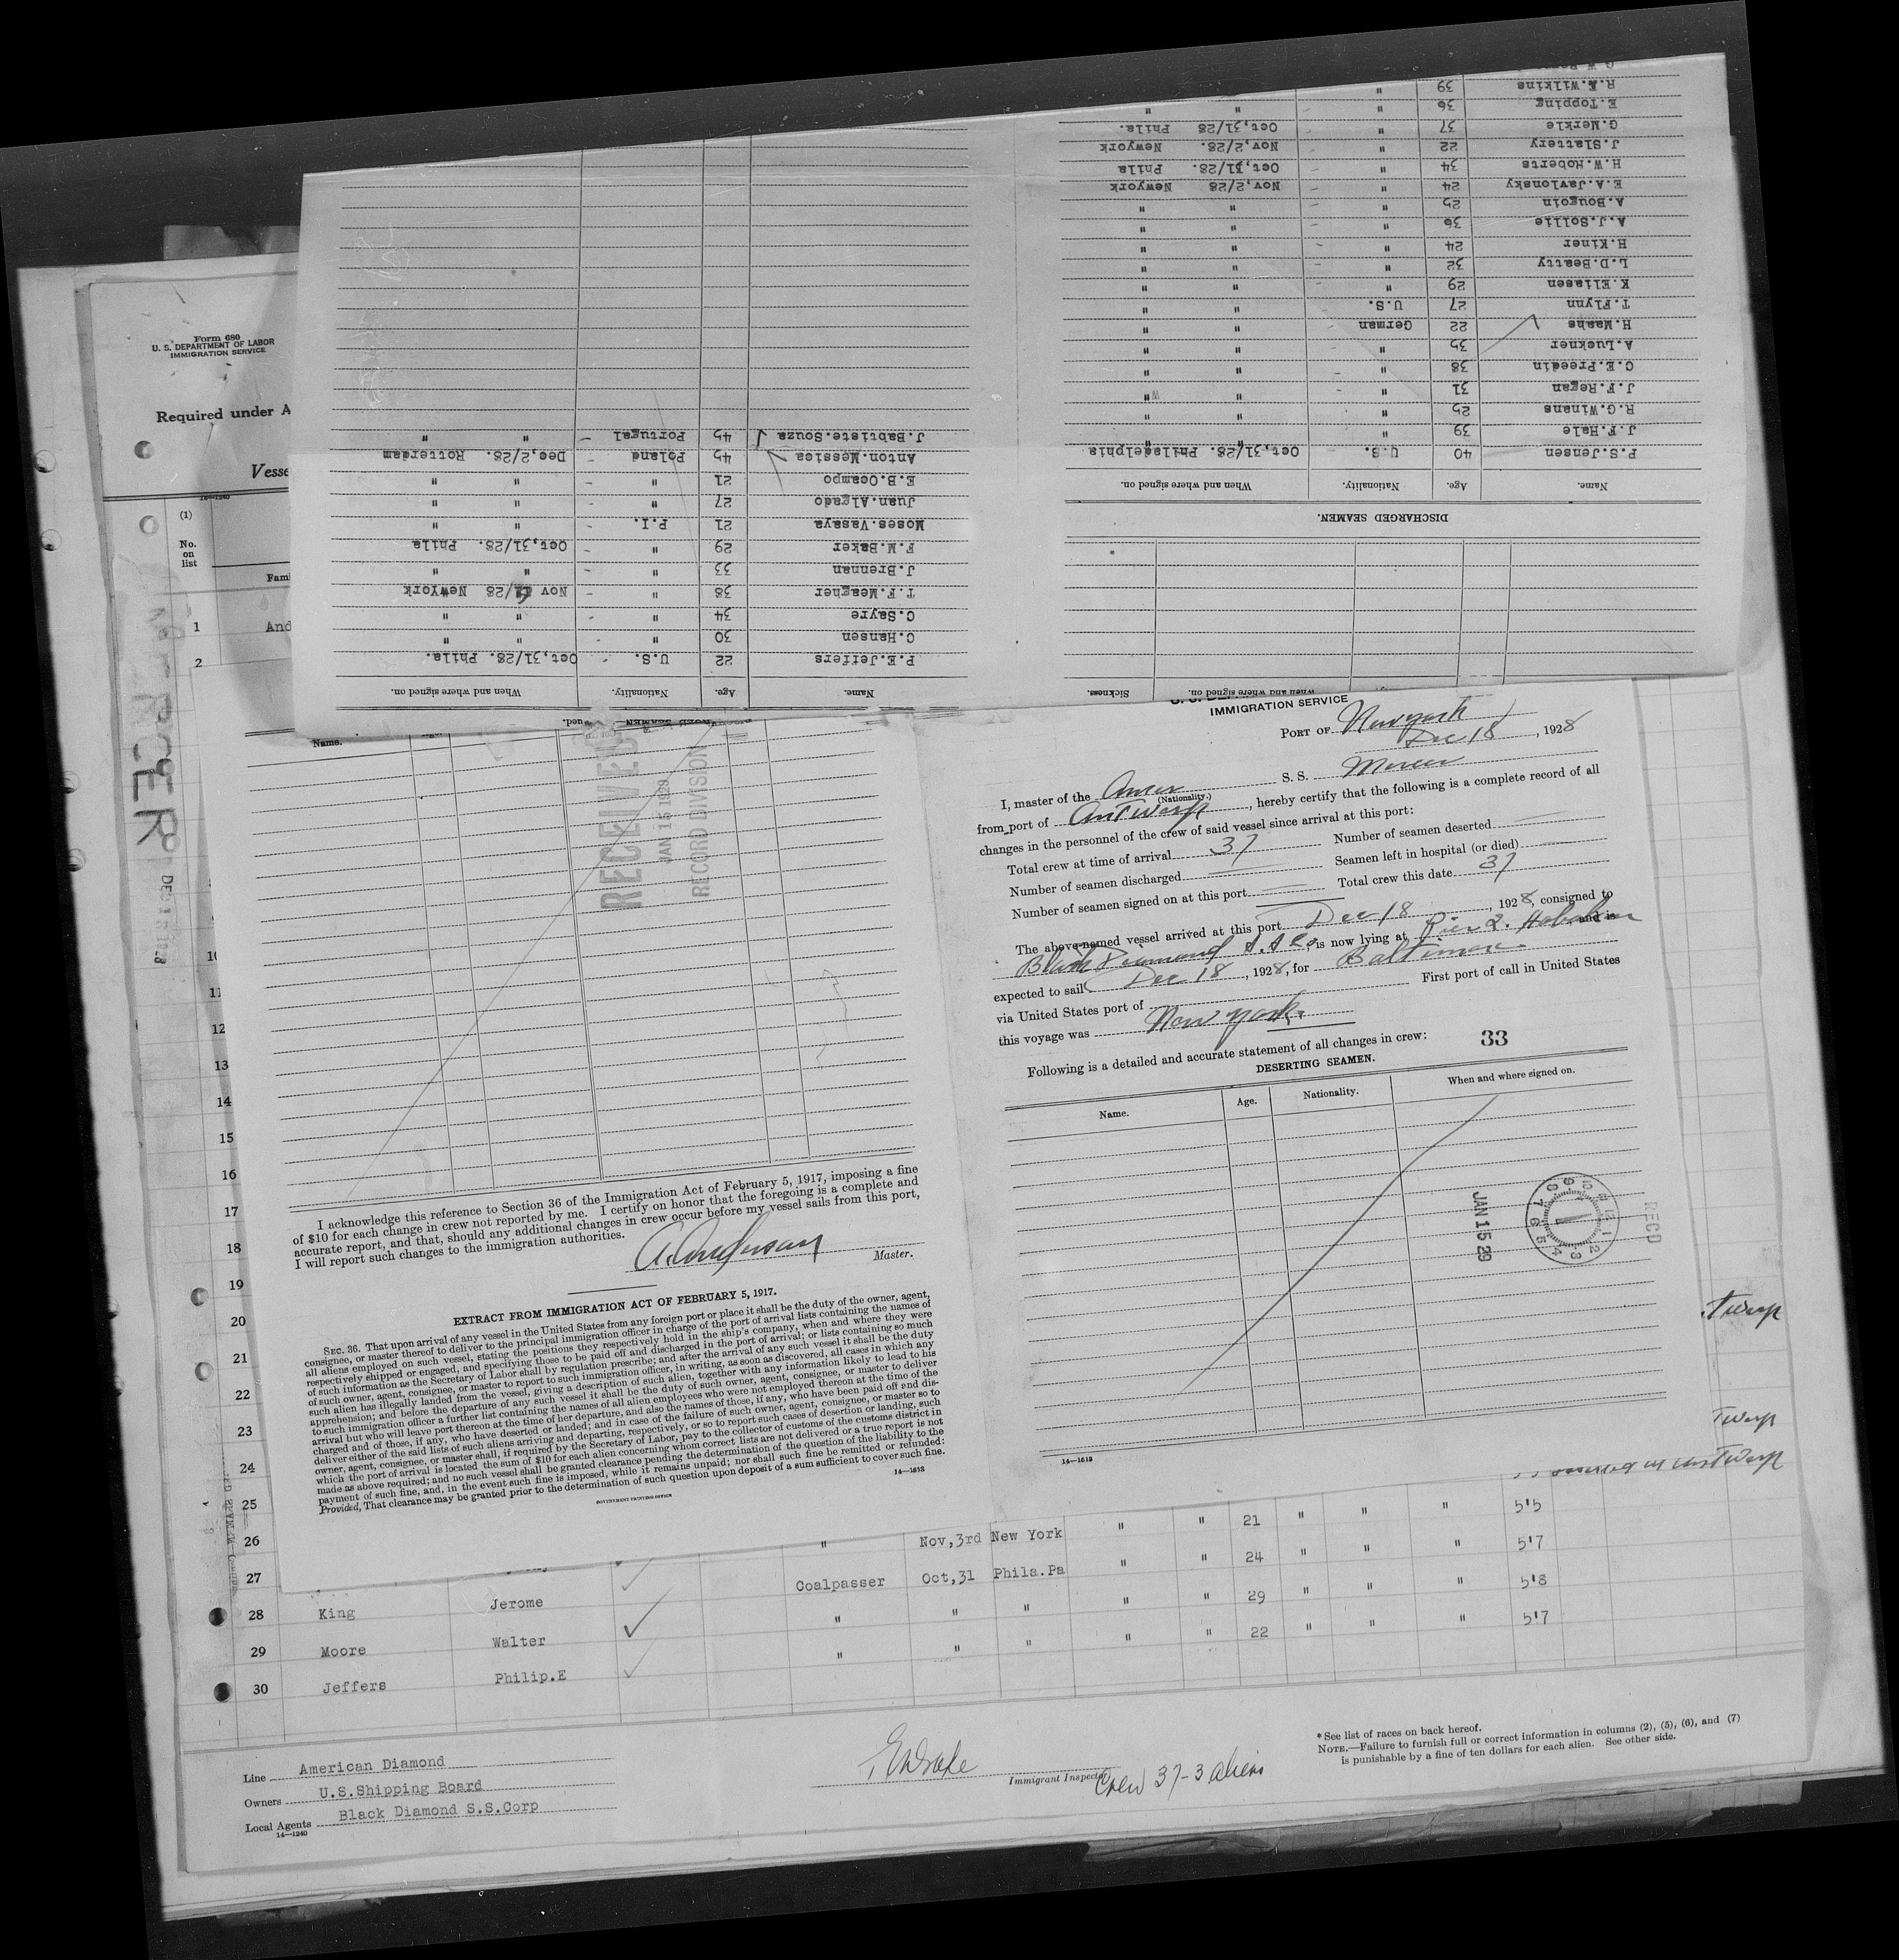 Form 680
U. S. DEPARTMENT OF LABOR
IMMIGRATION SERVICE
Required under A
Vesse
14—1240
(1)
No.
on
list
Fami
1 And
2
G.W.
R.E.Wilkins 39 "
E.Topping 36 " " "
G.Merkle 37 " Oct,31/28 Phila.
J.Slattery 22 " - Nov,2/28. Newyork
H.W.Roberts 34 " - Oct,31/28. Phila
E.A.Javlonsky 24 " - Nov,2/28 Newyork
A.Bougoin 25 " - " "
A.J.Sollie 36 " - " "
H.Kiner 24 " - " "
L.D.Beatty 32 " - " "
K.Eliasen 29 " - " "
T.Flynn 27 U.S. " "
H.Maahs 22 German " "
A.Luckner 35 " - " "
C.E.Preedin 38 " - " "
J.F.Regan 31 " - " "
R.G.Winans 25 " - " "
J.F.Hale 39 "
P.S.Jensen 40 U.S. - Oct,31/28. Philadelphia
Name. Age. Nationality. When and where signed on.
DISCHARGED SEAMEN.
When and where signed on. Sickness.
J.Babtiste.Souza 45 Portugal - " "
Anton.Messica 45 Poland - Dec,2/28. Rotterdam
E.B.Ocampo 21 " - " "
Juan.Algado 27 " - " "
Moses.Vasaya 21 P.I. - " "
F.M.Baker 29 " - Oct,31/28. Phila
J.Brennan 33 " - " "
T.F.Meagher 38 " - Nov /28 NewYork
C.Sayre 34 " - " "
C.Hansen 30 " - " "
P.E.Jeffers 22 U.S. - Oct,31/28. Phila.
Name. Age. Nationality. When and where signed on.
Name.
RECEIVED
JAN 15 1929
RECORD DIVISION
I acknowledge this reference to Section 36 of the Immigration Act of February 5, 1917, imposing a fine
of $10 for each change in crew not reported by me. I certify on honor that the foregoing is a complete and
accurate report, and that, should any additional changes in crew occur before my vessel sails from this port,
I will report such changes to the immigration authorities.
A. Anderson Master.
EXTRACT FROM IMMIGRATION ACT OF FEBRUARY 5, 1917.
SEC. 36. That upon arrival of any vessel in the United States from any foreign port or place it shall be the duty of the owner, agent,
consignee, or master thereof to deliver to the principal immigration officer in charge of the port of arrival lists containing the names of
all aliens employed on such vessel, stating the positions they respectively hold in the ship's company, when and where they were
respectively shipped or engaged, and specifying those to be paid off and discharged in the port of arrival; or lists containing so much
of such information as the Secretary of Labor shall by regulation prescribe; and after the arrival of any such vessel it shall be the duty
of such owner, agent, consignee, or master to report to such immigration officer, in writing, as soon as discovered, all cases in which any
such alien has illegally landed from the vessel, giving a description of such alien, together with any information likely to lead to his
apprehension; and before the departure of any such vessel it shall be the duty of such owner, agent, consignee, or master to deliver
to such immigration officer a further list containing the names of all alien employees who were not employed thereon at the time of the
arrival but who will leave port thereon at the time of her departure, and also the names of those, if any, who have been paid off and dis-
charged and of those, if any, who have deserted or landed; and in case of the failure of such owner, agent, consignee, or master so to
deliver either of the said lists of such aliens arriving and departing, respectively, or so to report such cases of desertion or landing, such
owner, agent, consignee, or master shall, if required by the Secretary of Labor, pay to the collector of customs of the customs district in
which the port of arrival is located the sum of $10 for each alien concerning whom correct lists are not delivered or a true report is not
made as above required; and no such vessel shall be granted clearance pending the determination of the question of the liability to the
payment of such fine, and, in the event such fine is imposed, while it remains unpaid; nor shall such fine be remitted or refunded:
Provided, That clearance may be granted prior to the determination of such question upon deposit of a sum sufficient to cover such fine.
14—1613
GOVERNMENT PRINTING OFFICE
IMMIGRATION SERVICE
PORT OF New york
Dec 18, 1928
I, master of the Amer S. S. Mercer
(Nationality.)
from port of Antwerp, hereby certify that the following is a complete record of all
changes in the personnel of the crew of said vessel since arrival at this port:
Total crew at time of arrival 37 Number of seamen deserted
Number of seamen discharged Seamen left in hospital (or died)
Number of seamen signed on at this port Total crew this date 37
The above-named vessel arrived at this port Dec 18, 1928, consigned to
Black Diamond S.S Co, is now lying at Pier 2. Hoboken and is
expected to sail Dec 18, 1928, for Baltimore
via United States port of First port of call in United States
this voyage was New york.
Following is a detailed and accurate statement of all changes in crew: 33
DESERTING SEAMEN.
Name. Age. Nationality. When and where signed on.
RECD
JAN 15 29
14—1613
10
11
12
13
14
15
16
17
18
19
20
21
22
23
24
25
26 " Nov,3rd New York " " 21 " " " 5'5
27 Coalpasser Oct,31 Phila.Pa " " 24 " " " 5'7
28 King Jerome " " " " " 29 " " " 5'8
29 Moore Walter " " " " " 22 " " " 5'7
30 Jeffers Philip.E
Line American Diamond
Owners U.S.Shipping Board
Local Agents Black Diamond S.S.Corp
14—1240
Immigrant Inspector.
Crew 37-3 aliens
* See list of races on back hereof.
NOTE.—Failure to furnish full or correct information in columns (2), (5), (6), and (7)
is punishable by a fine of ten dollars for each alien. See other side.